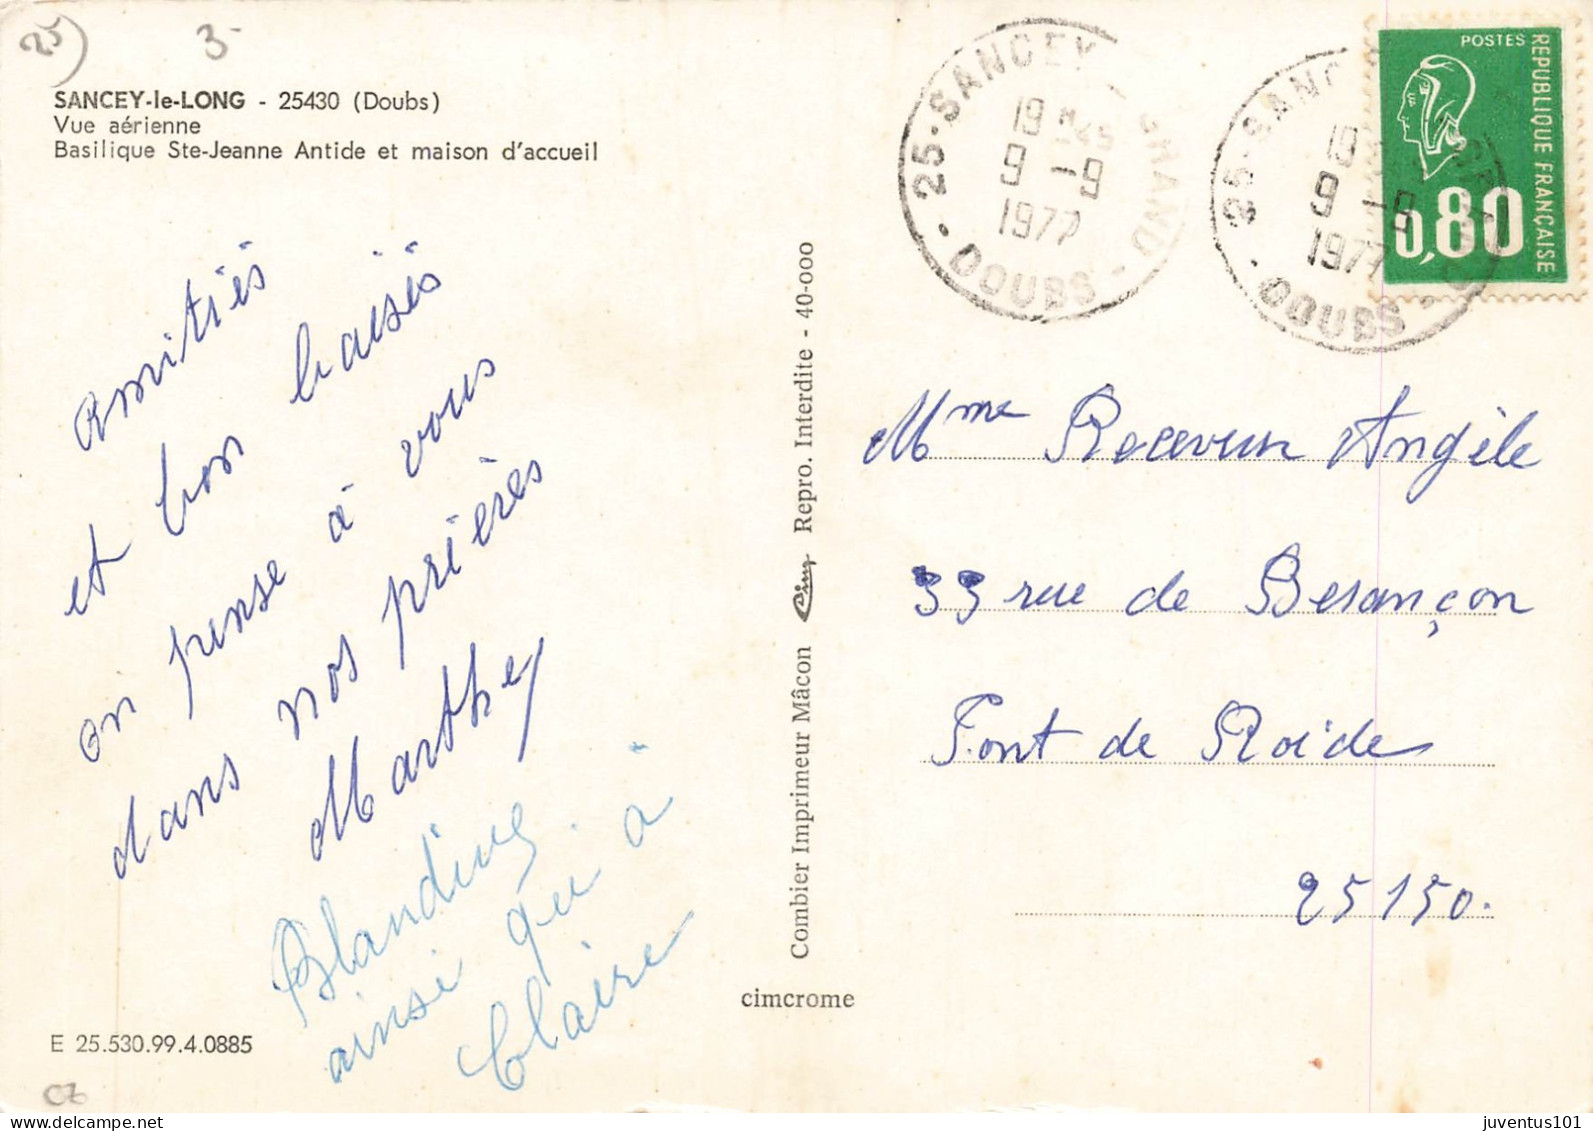 25)
3-
SANCEY-le-LONG - 25430 (Doubs)
Vue aérienne
Basilique Ste-Jeanne Antide et maison d'accueil
amitiés
et bon baisés
on pense à vous
dans nos prières
Marthey
Blandine
ainsi qu'à
Claire
E 25.530.99.4.0885
Combier Imprimeur Mâcon Cim Repro. Interdite - 40-000
cimcrome
25 · SANCEY - GRAND - DOUBS ·
19 H45
9 -9
1977
25 · SANCEY GRAND - DOUBS ·
19
9 -9
1977
POSTES
REPUBLIQUE FRANÇAISE
0,80
Mme Receveur Angèle
33 rue de Besançon
Pont de Roide
25150.
juventus101